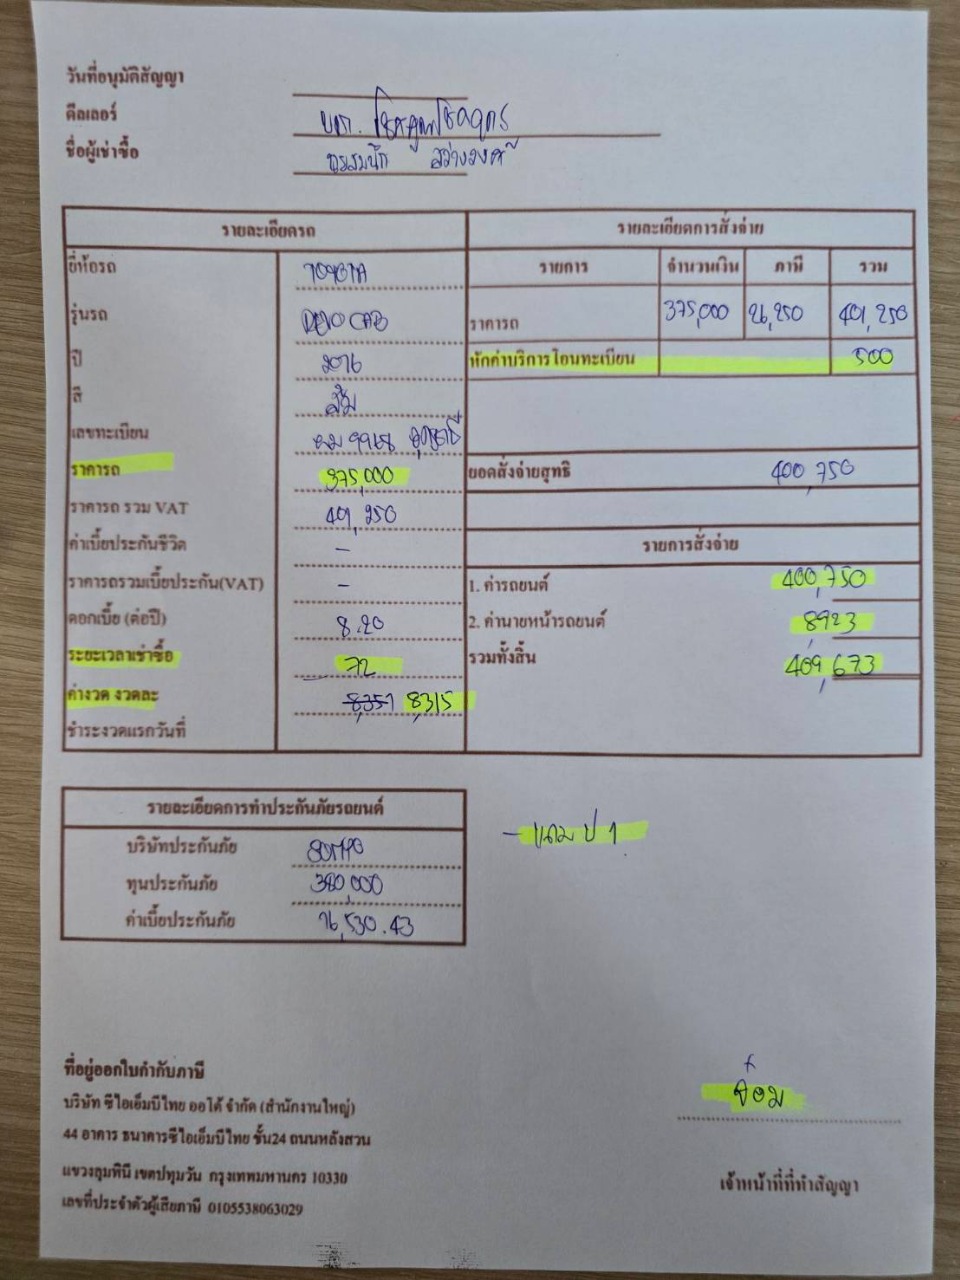 วันที่อนุมัติสัญญา
ดีลเลอร์ บจก.
ชื่อผู้เช่าซื้อ
รายละเอียดรถ
ยี่ห้อรถ TOYOTA
รุ่นรถ REVO CAB
ปี 2016
สี ส้ม
เลขทะเบียน
ราคารถ 375,000
ราคารถ รวม VAT 401,250
ค่าเบี้ยประกันชีวิต -
ราคารถรวมเบี้ยประกัน(VAT) -
ดอกเบี้ย (ต่อปี) 8.20
ระยะเวลาเช่าซื้อ 72
ค่างวด งวดละ 8,351 8,315
ชำระงวดแรกวันที่
รายละเอียดการสั่งจ่าย
รายการ จำนวนเงิน ภาษี รวม
ราคารถ 375,000 26,250 401,250
หักค่าบริการโอนทะเบียน 500
ยอดสั่งจ่ายสุทธิ 400,750
รายการสั่งจ่าย
1. ค่ารถยนต์ 400,750
2. ค่านายหน้ารถยนต์ 8,923
รวมทั้งสิ้น 409,673
รายละเอียดการทำประกันภัยรถยนต์
บริษัทประกันภัย
ทุนประกันภัย 380,000
ค่าเบี้ยประกันภัย 16,530.43
- แถม ป 1
ที่อยู่ออกใบกำกับภาษี
บริษัท ซีไอเอ็มบีไทย ออโต้ จำกัด (สำนักงานใหญ่)
44 อาคาร ธนาคารซีไอเอ็มบีไทย ชั้น24 ถนนหลังสวน
แขวงลุมพินี เขตปทุมวัน กรุงเทพมหานคร 10330
เลขที่ประจำตัวผู้เสียภาษี 0105538063029
x
จ๋อม
เจ้าหน้าที่ที่ทำสัญญา